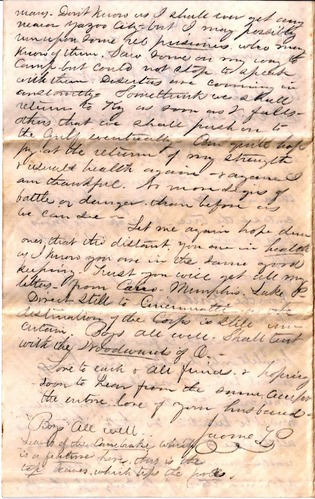 many. Don't know as I shall ever get any
nearer Yazoo City but I may possibly
run upon some Reb prisoners who may
know of them. Saw some on my way to
Camp but could not stop to speak
with them. Deserters are coming in
constantly. Some think we shall
return to Ky as soon as V. falls
others that we shall push on to
the Gulf eventually. You will hope
joy at the return of my strength
& usual health again & again I
am thankful. No more signs of
battle or danger than before as
we can see
Let me again hope dear
ones that tho distant you are in health
as I know you are in the same good
keeping. Trust you will get all my
letters from Cairo. Memphis. Lake P.
Direct still to Cincinnati as the
destination of the Corps is still un-
certain. Boys all well. Shall tent
with the Woodwards of O.
Love to each & all friends. & hoping
soon to hear from the same accept
the entire love of your husband
Boys all well
is a feature here, this is the
top leaves, which tips the